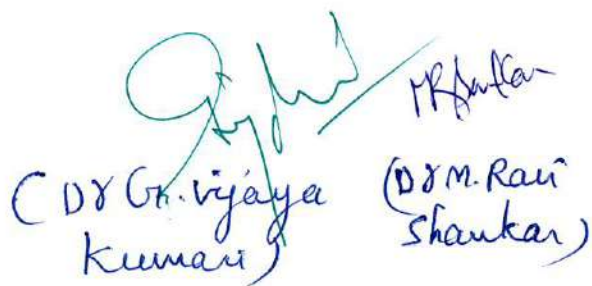 (Dr G. Vijaya
Kumari)
(Dr M. Ravi
Shankar)